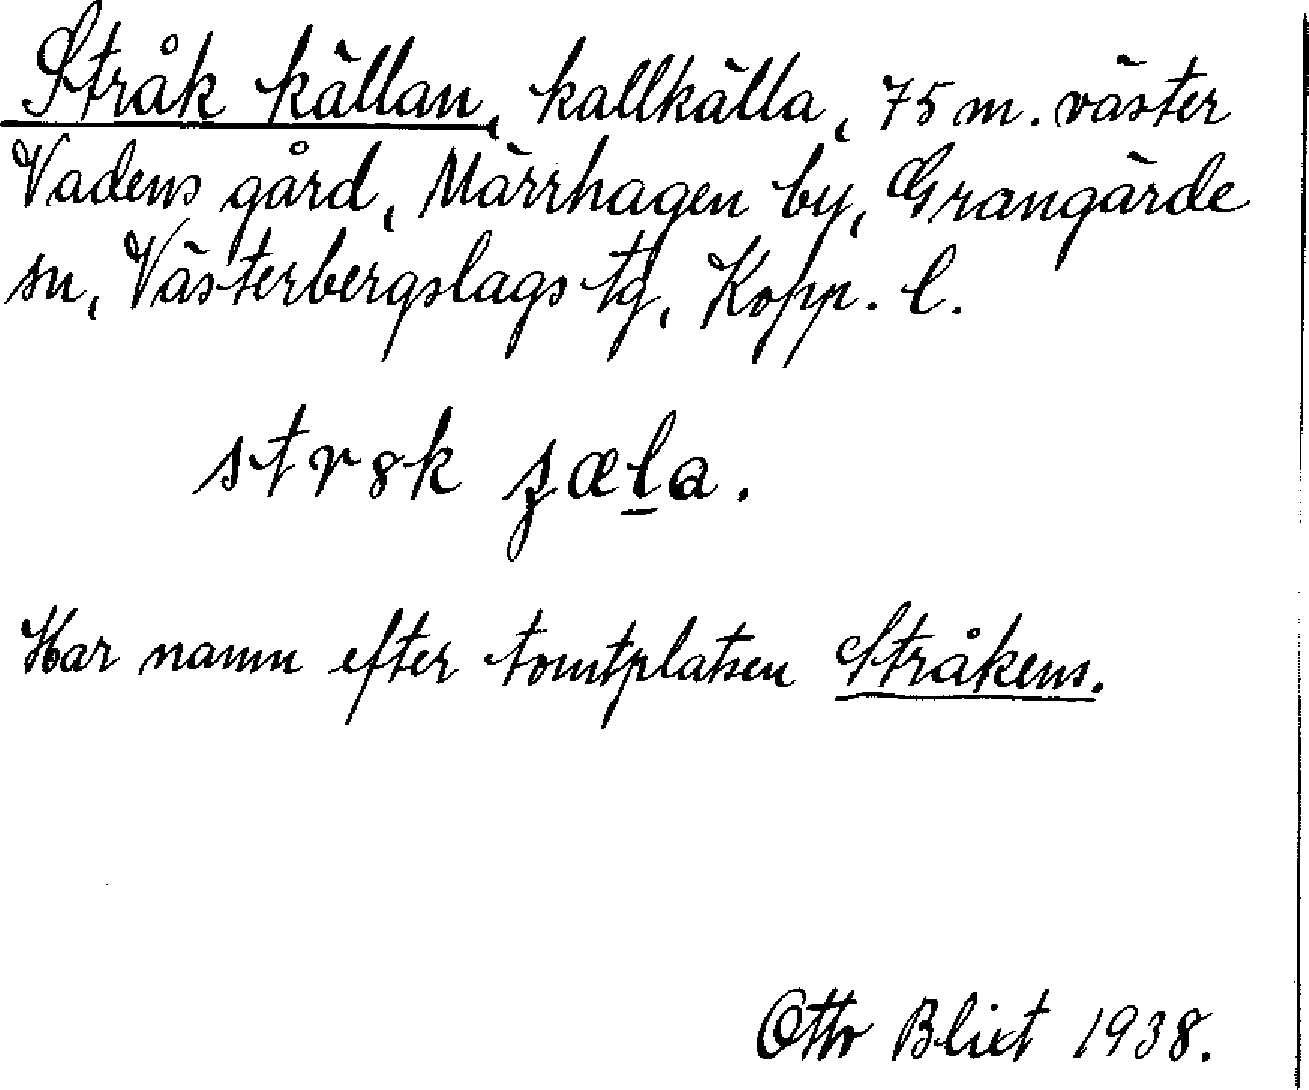 Stråk källan, kallkälla, 75 m. väster
Vadens gård, Märrhagen by, Grangärde
sn, Västerbergslags tg, Kopp. l.
str8k ʂæla.
Har namn efter tomtplatsen Stråkens.
Otto Blixt 1938.